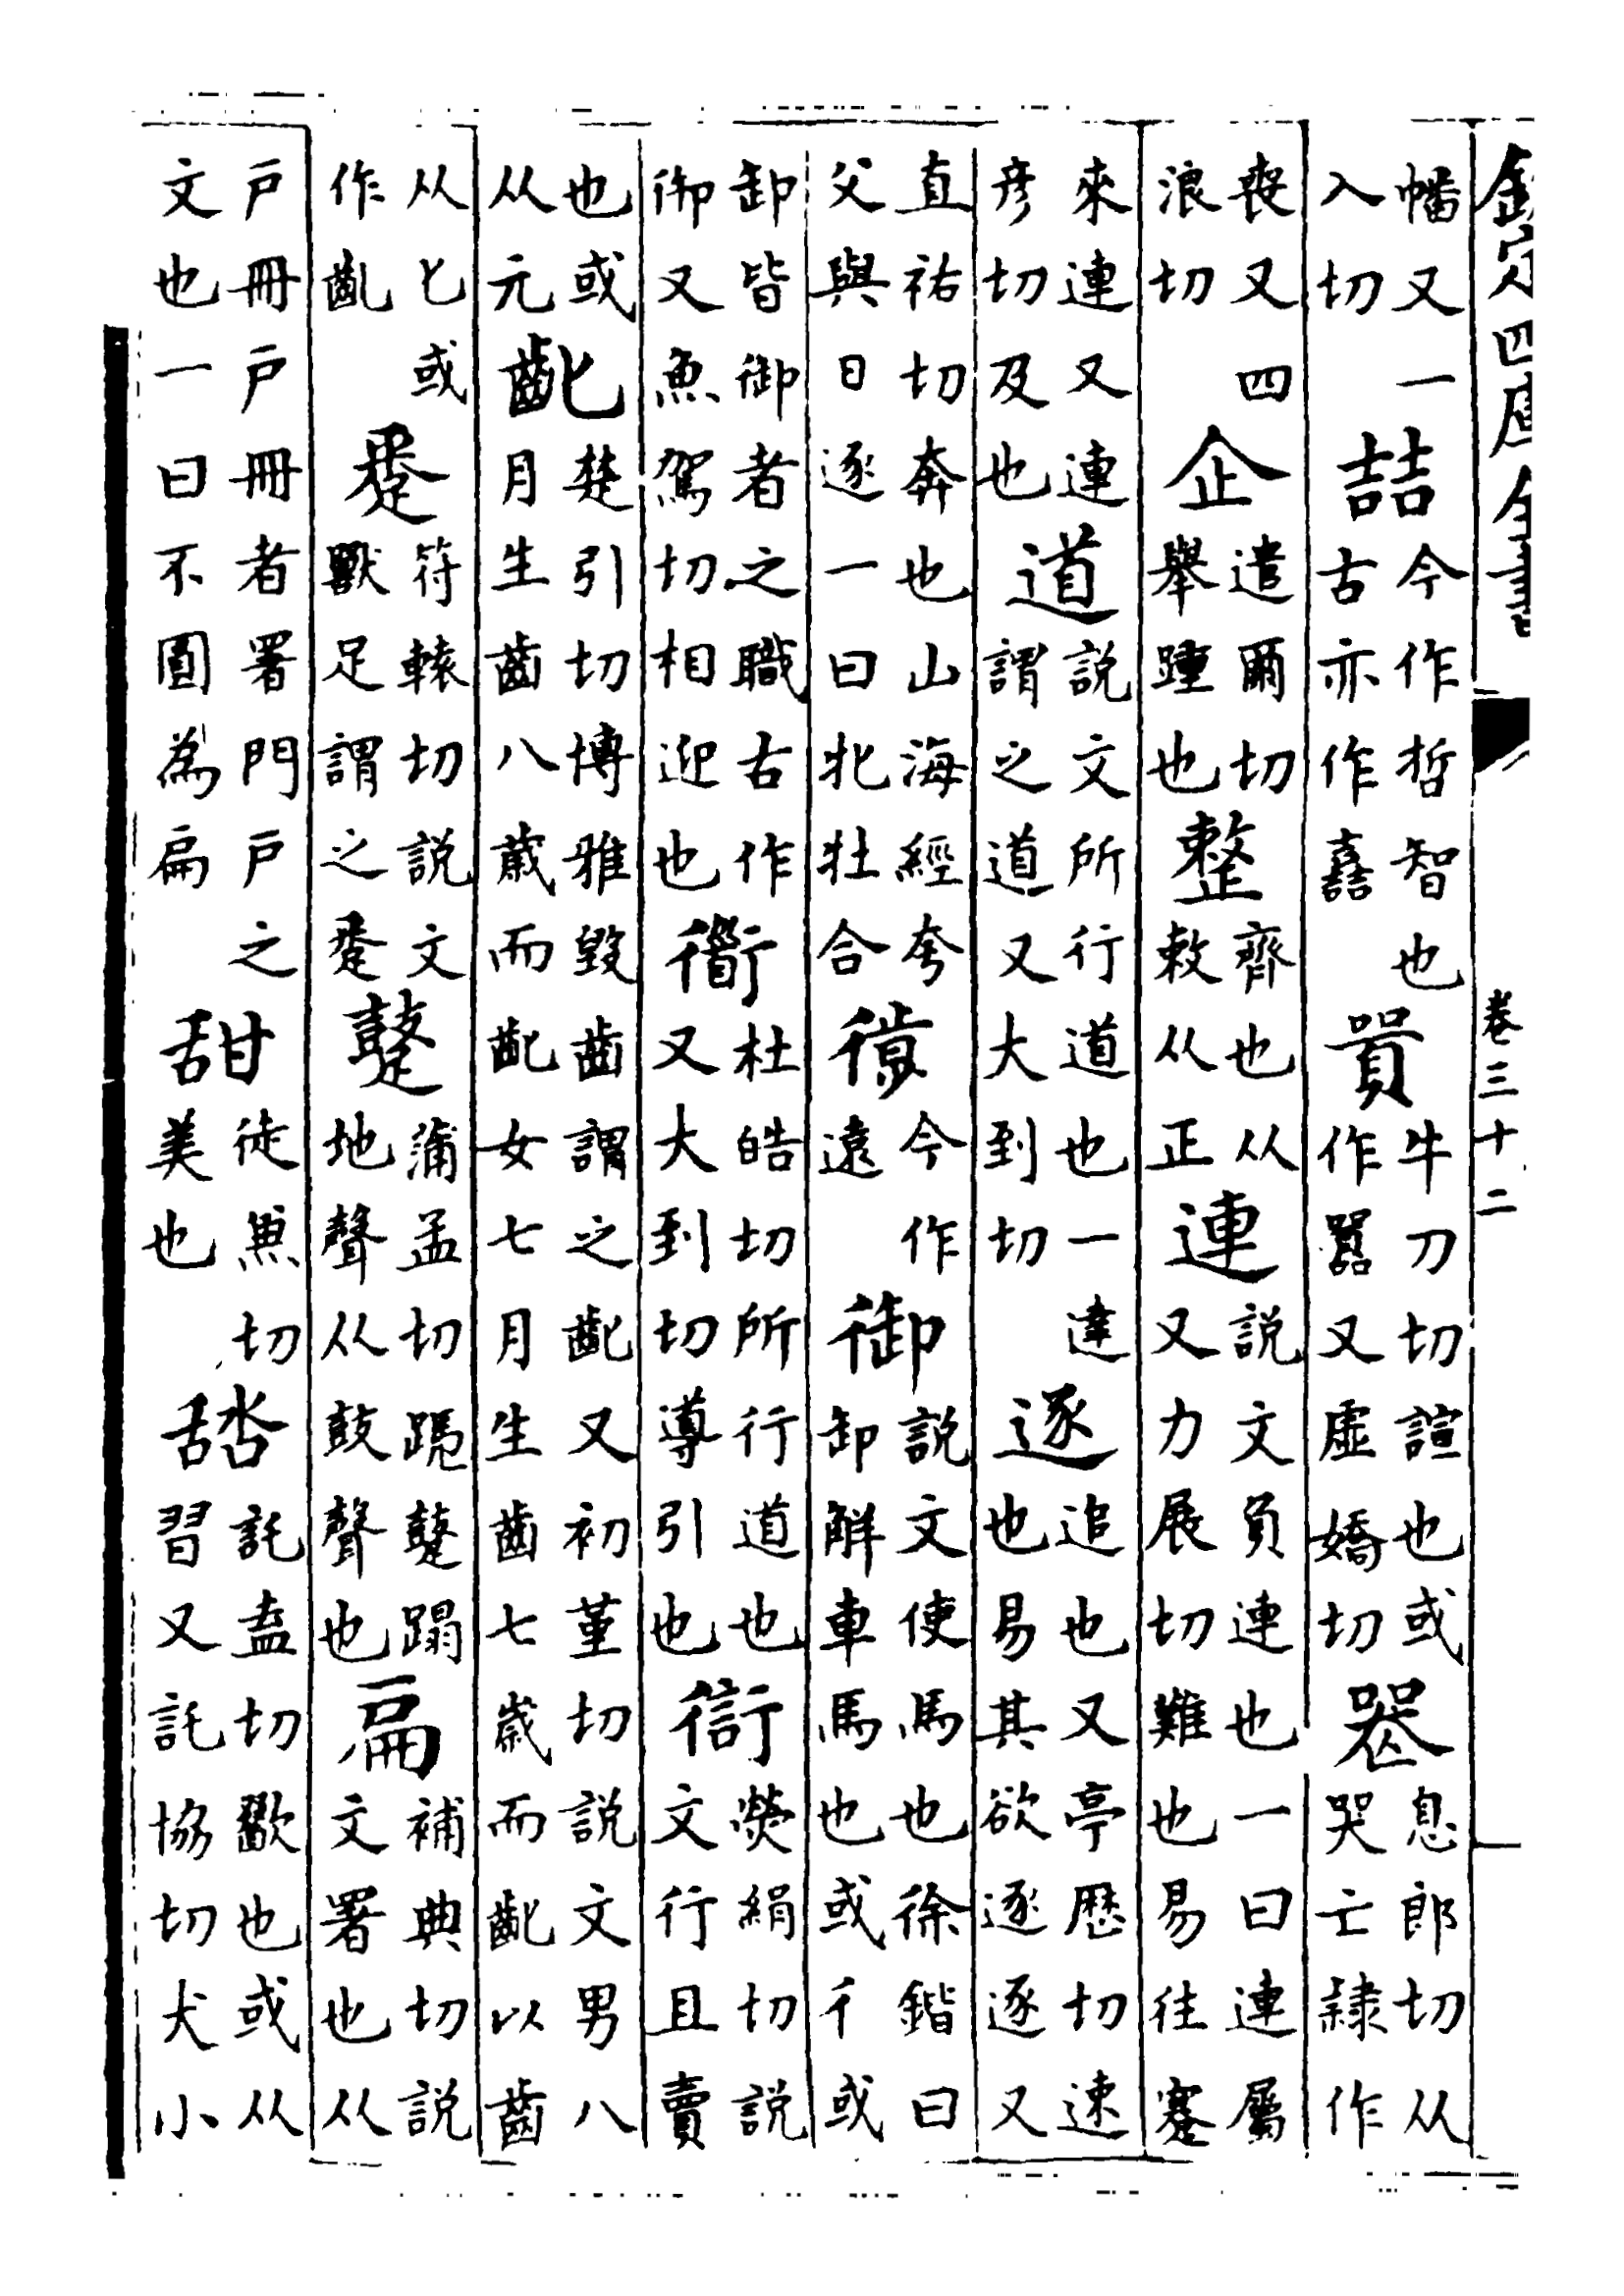 欽定四庫全書
卷三十二
幡又一入切喆今作哲智也古亦作嚞 牛刀切諠也或作嚻又虛嬌切 息郎切从哭亡隸作
喪又四浪切企遣爾切舉踵也整齊也从敕从正連說文負連也一曰連屬又力展切難也易往蹇
來連又連彦切及也道說文所行道也一達謂之道又大到切逐追也又亭歷切速也易其欲逐逐又
直祐切奔也山海經夸父與日逐一曰牝牡合 今作遠御說文使馬也徐鍇曰卸解車馬也或彳或
卸皆御者之職古作御又魚駕切相迎也衜杜皓切所行道也又大到切導引也 熒絹切說文行且賣
也或从元齔楚引切博雅毀齒謂之齔又初堇切說文男八月生齒八歲而齔女七月生齒七歲而齔以齒
从匕或作齓 符轅切說文獸足謂之 蒲孟切 蹋地聲从鼓聲也扁補典切說文署也从
戶冊戶冊者署門戶之文也一曰不圓為扁甜徒兼切美也 託盍切歠也或从習又託協切犬小